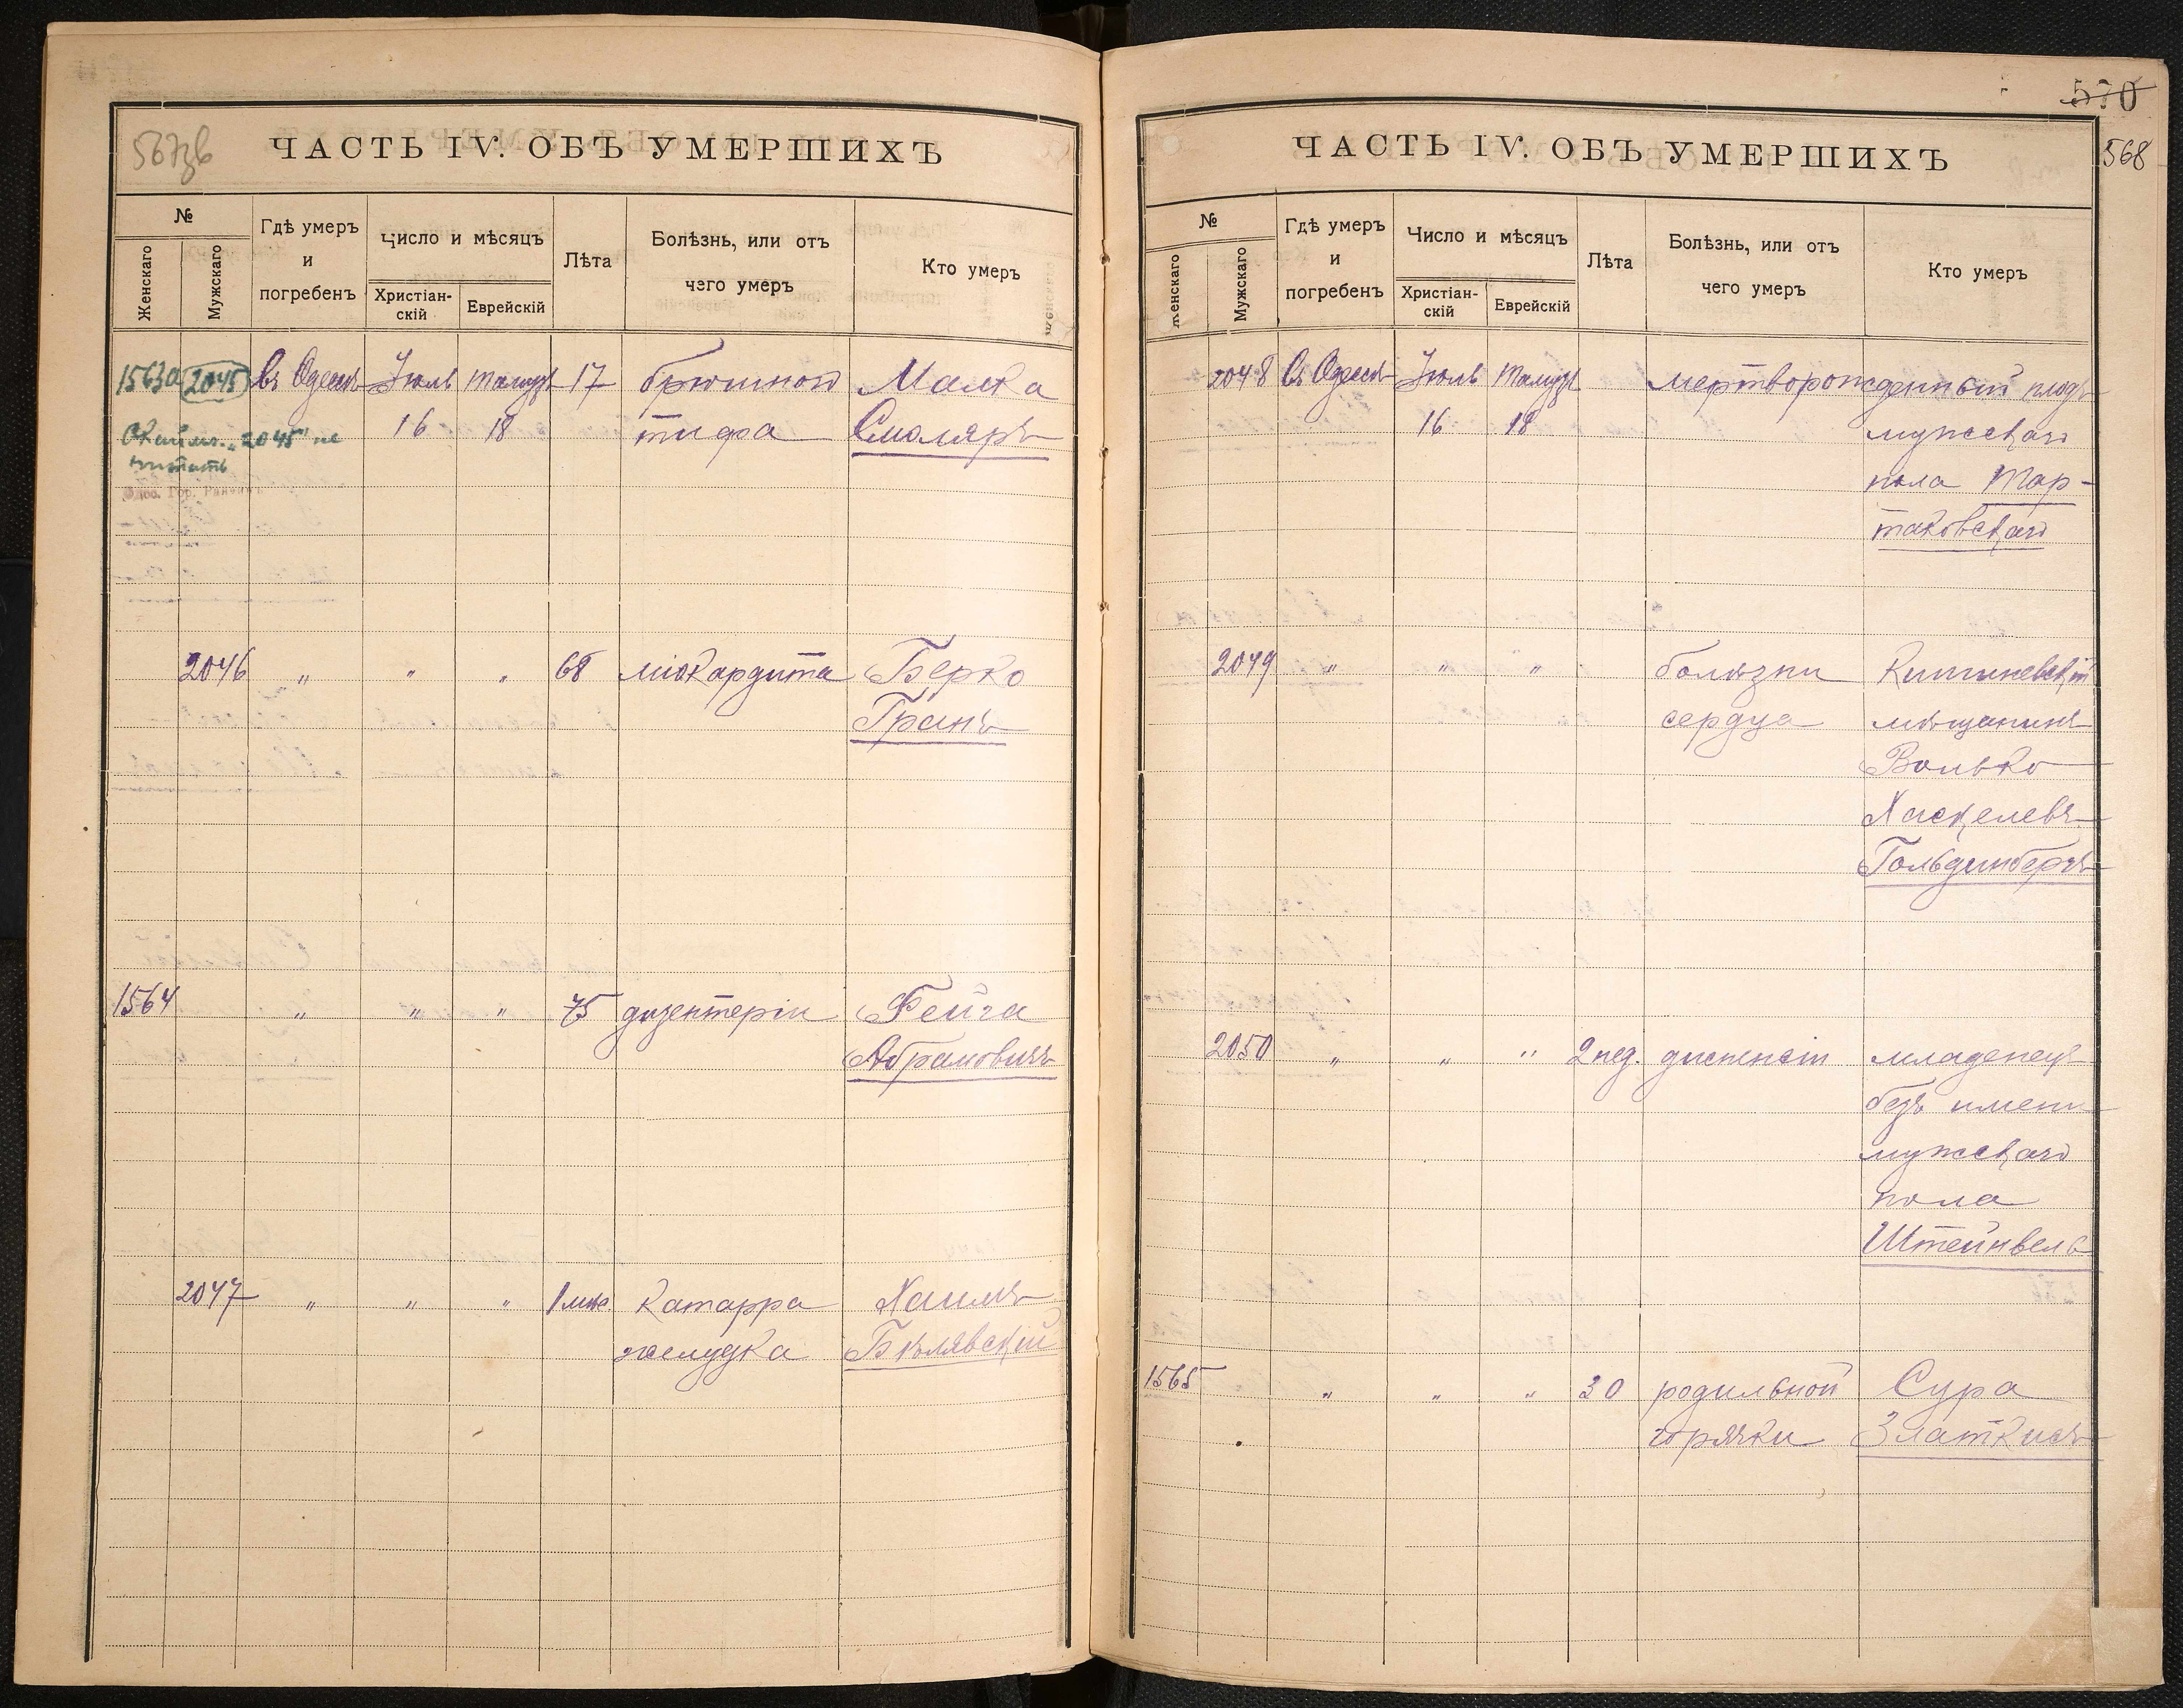 567об
ЧАСТЬ IV. ОБЪ УМЕРШИХЪ
№
Женскаго
Мужскаго
Гдѣ умеръ
и
погребенъ
Число и мѣсяцъ
Христіан-
скій
Еврейскій
Лѣта
Болѣзнь, или отъ
чего умеръ
Кто умеръ
1563а 2045 Въ Одессѣ Іюль Тамузъ 17 брюшной Малка
16 18 тифа Смоляръ
"2045" не
читать
Одес. Гор. Раввинъ
2046 " " " 68 міокардита Берко
Гранъ
1564 " " " 75 дизентеріи Фейга
Абрамовичъ
2047 " " " 1 мѣс Катарра Хаимъ
желудка Бѣлявскій
570
568
ЧАСТЬ IV. ОБЪ УМЕРШИХЪ
№
Женскаго
Мужскаго
Гдѣ умеръ
и
погребенъ
Число и мѣсяцъ
Христіан-
скій
Еврейскій
Лѣта
Болѣзнь, или отъ
чего умеръ
Кто умеръ
2048 Въ Одессѣ Іюль Тамузъ мертворожденный плодъ
16 18 мужскаго
пола Тар-
таковскаго
2049 " " " болѣзни Кишиневскій
сердца мѣщанинъ
Волько
Хаскелевъ
Гольдинбергъ
2050 " " " 2 нед. диспепсіи младенецъ
безъ имени
мужскаго
пола
Штейнвель
1565 " " " 30 родильной Сура
горячки Златкисъ